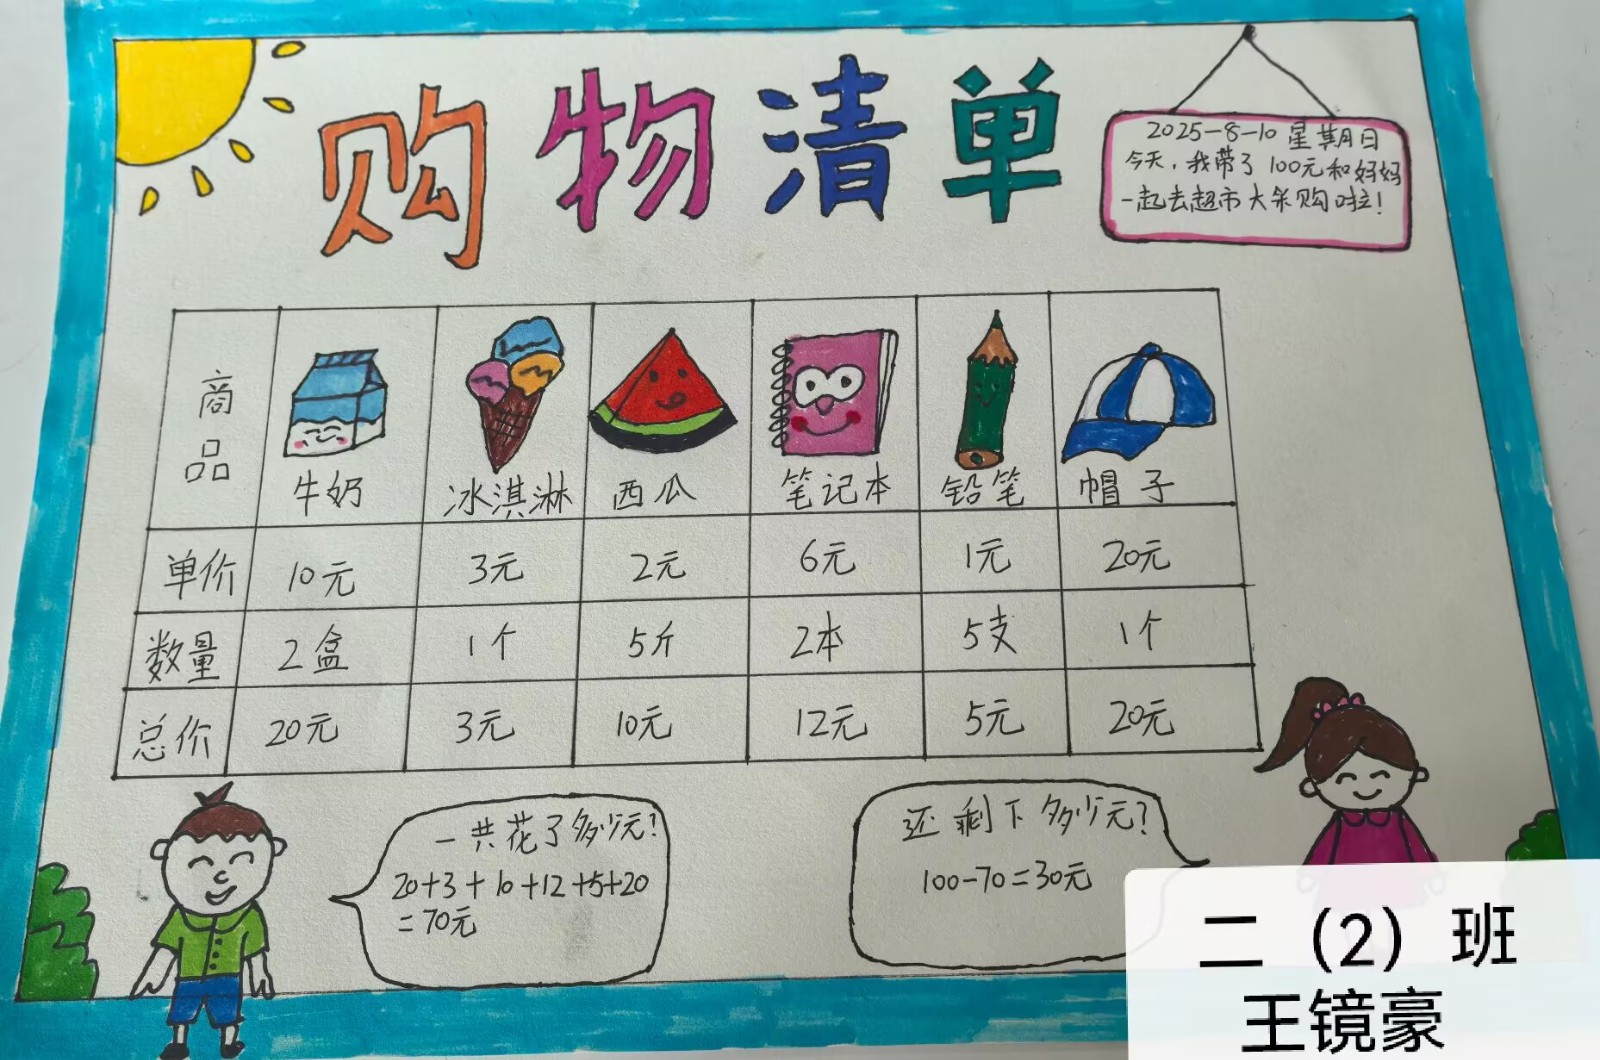 购物清单
2025-8-10 星期日
今天，我带了100元和妈妈
一起去超市大采购啦！
商品 牛奶 冰淇淋 西瓜 笔记本 铅笔 帽子
单价 10元 3元 2元 6元 1元 20元
数量 2盒 1个 5斤 2本 5支 1个
总价 20元 3元 10元 12元 5元 20元
一共花了多少元？
20+3+10+12+5+20
=70元
还剩下多少元？
100-70=30元
二（2）班
王镜豪